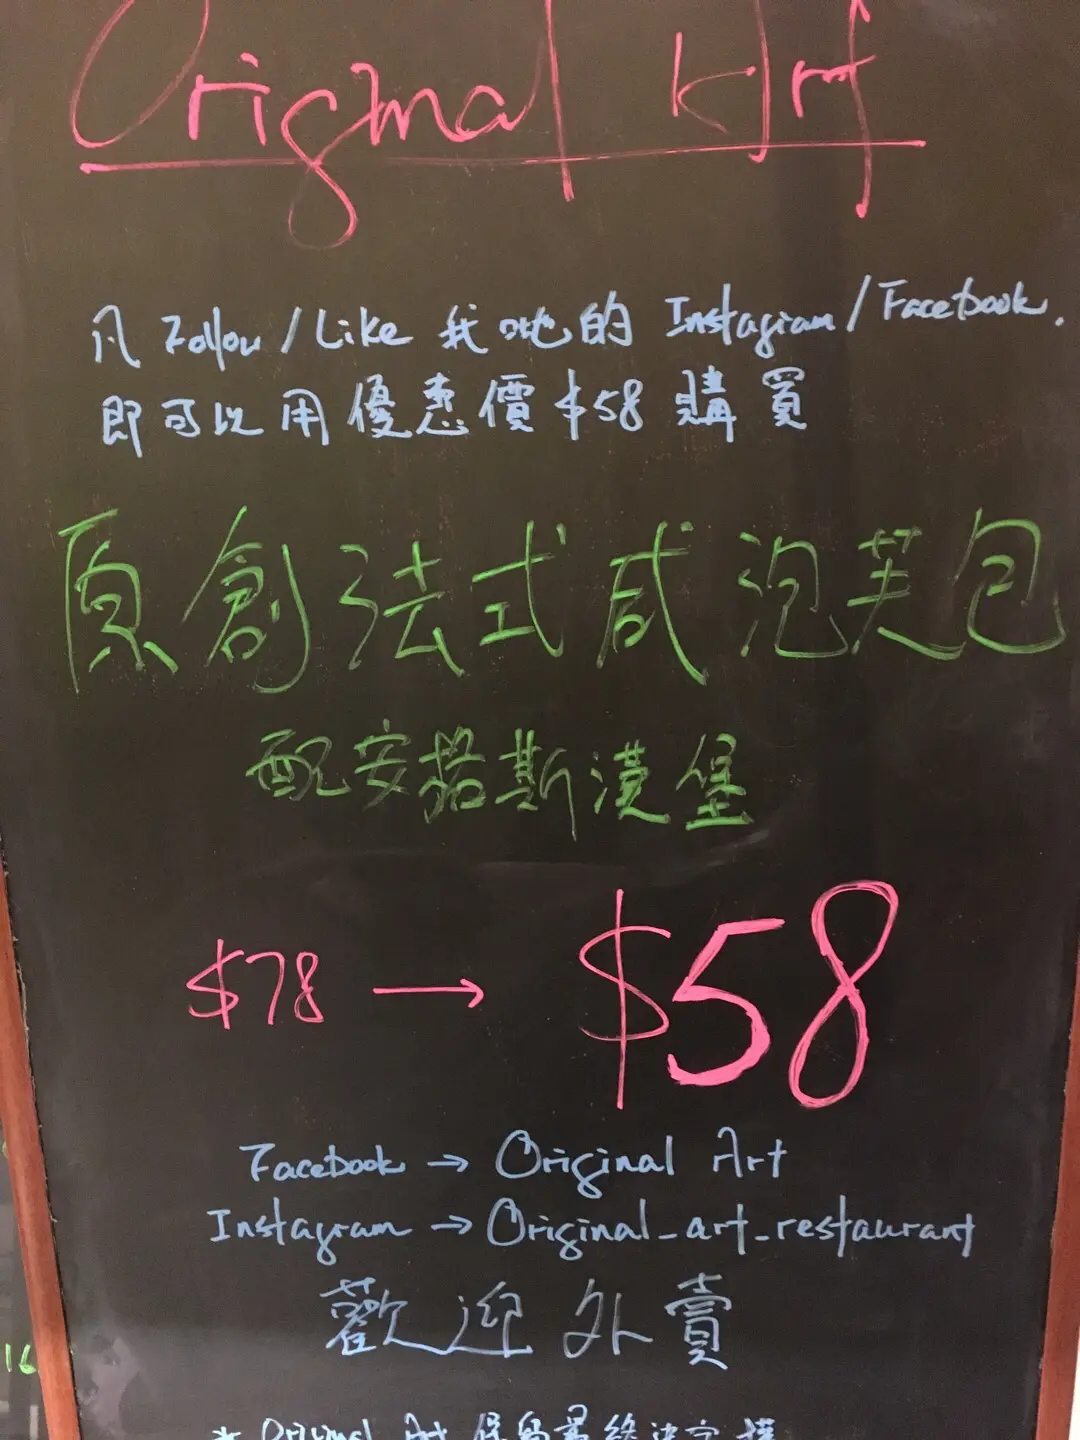 Original Art
凡 Follow/Like 我哋的 Instagram/Facebook,
即可以用優惠價 $58 購買
原創法式咸泡芙包
配安格斯漢堡
$78 → $58
Facebook → Original Art
Instagram → Original_art_restaurant
歡迎外賣
* Original Art 保留最終決定權
16